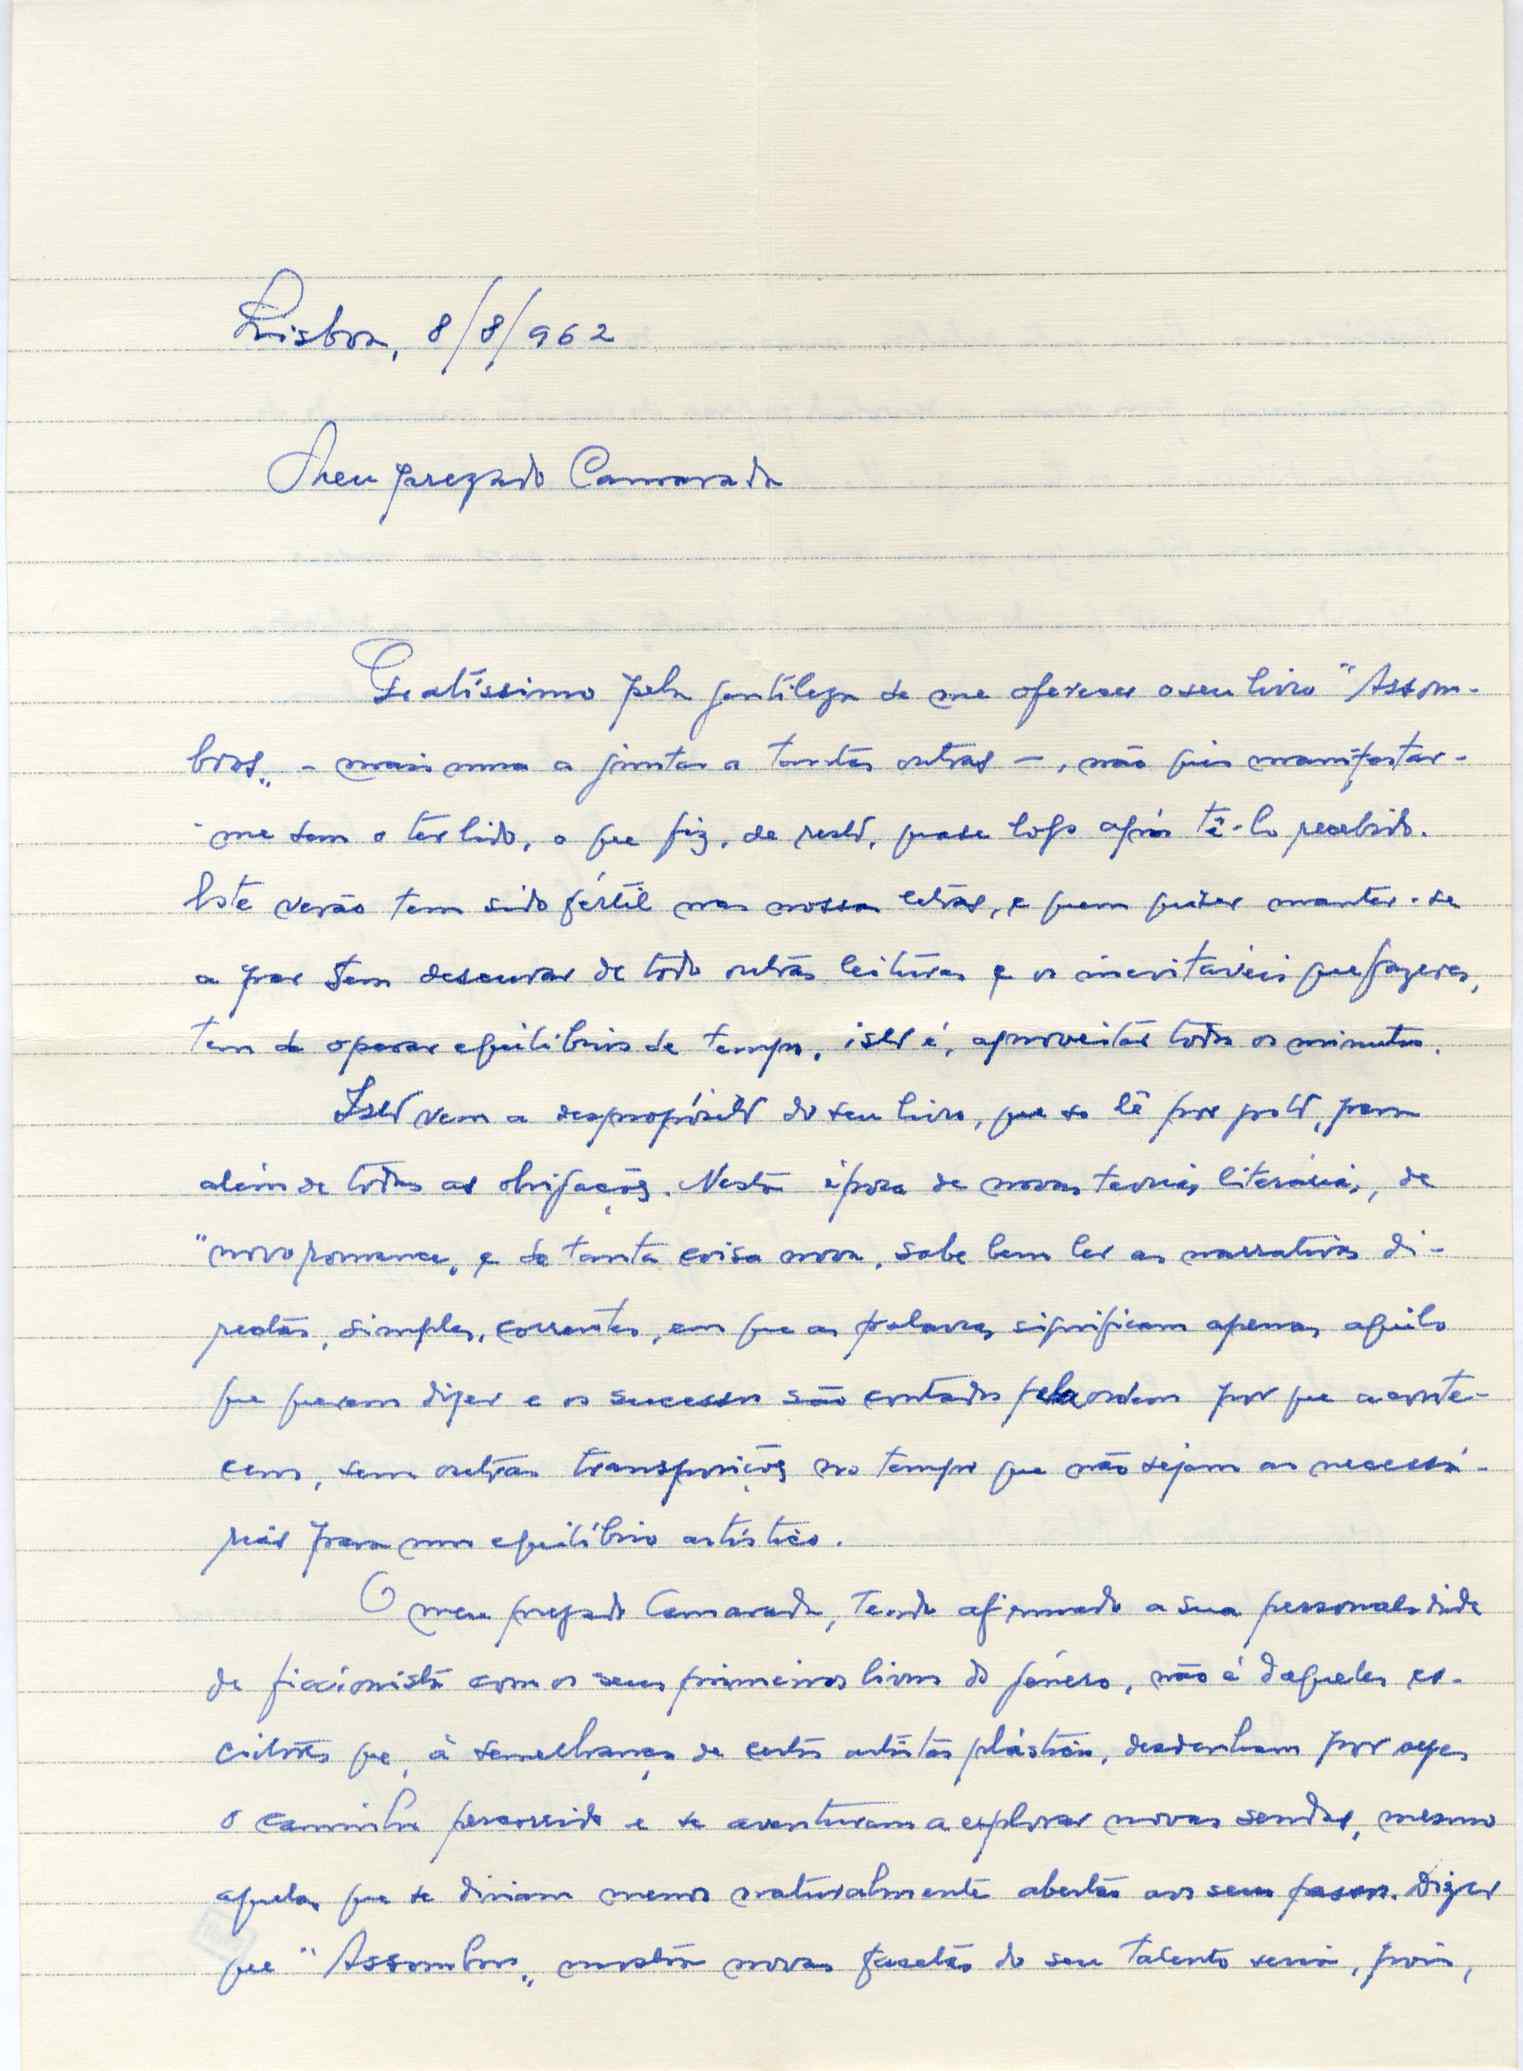 Lisboa, 8/8/962
Meu prezado Camarada
Gratíssimo pela gentileza de me oferecer o seu livro "Assom-
bros„ - mais uma a juntar a tantas outras -, não quis manifestar-
-me sem o ter lido, o que fiz, de resto, quase logo após tê-lo recebido.
Este verão tem sido fértil nas nossas letras, e quem quiser manter-se
a par sem descurar de todo outras leituras e os inevitáveis quefazeres,
tem de operar equilíbrios de tempo, isto é, aproveitar todos os minutos.
Isto vem a despropósito do seu livro, que se lê por gosto, para
além de todas as obrigações. Nesta época de novas teorias literárias, de
"novo romance„ e de tanta coisa nova, sabe bem ler as narrativas di-
rectas, simples, correntes, em que as palavras significam apenas aquilo
que querem dizer e os sucessos são contados pela ordem por que aconte-
cem, sem outras transposições no tempo que não sejam as necessá-
rias para um equilíbrio artístico.
O meu prezado Camarada, tendo afirmado a sua personalidade
de ficcionista com os seus primeiros livros do género, não é daqueles es-
critores que, à semelhança de certos artistas plásticos, desdenham por vezes
o caminho percorrido e se aventuram a explorar novas sendas, mesmo
aquelas que se diriam menos naturalmente abertas aos seus passos. Dizer
que "Assombros„ mostra novas facetas do seu talento seria, pois,